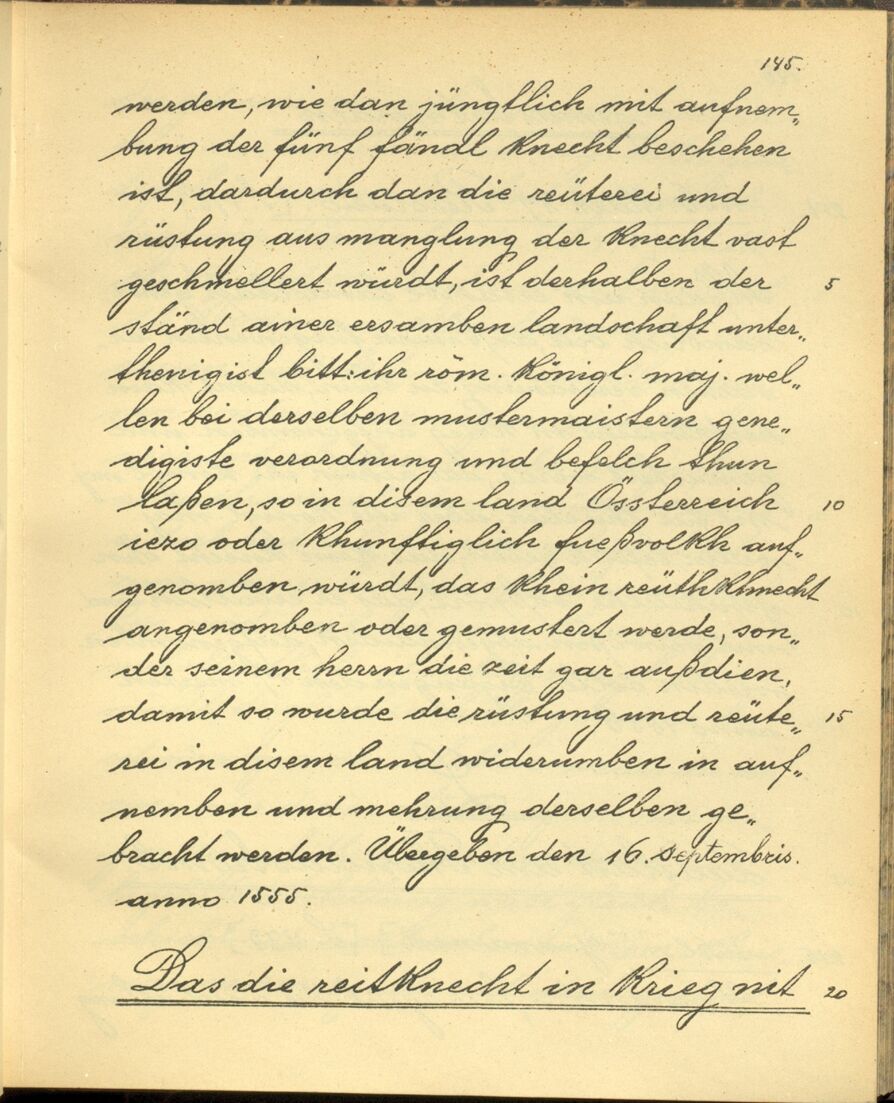 145.
werden, wie dan jüngstlich mit aufnem„
bung der fünf fändl knecht beschehen
ist, dardurch dan die reüterei und
rüstung aus manglung der knecht vast
geschmellert würdt, ist derhalben der 5
ständ ainer ersamben landschaft unter„
thenigist bitt: ihr röm. königl. maj. wel„
len bei derselben mustermaistern gene„
digiste verordnung und befelch thun
laßen, so in disem land Össterreich 10
iezo oder khunfftiglich fueßvolkh auf„
genomben würdt, das khein reüthkhnecht
angenomben oder gemustert werde, son„
der seinem herrn die zeit gar außdien,
damit so wurde die rüstung und reüte„ 15
rei in disem land widerumben in auf„
nemben und mehrung derselben ge„
bracht werden. Übergeben den 16. septembris.
anno 1555.
Das die reitknecht in krieg nit 20